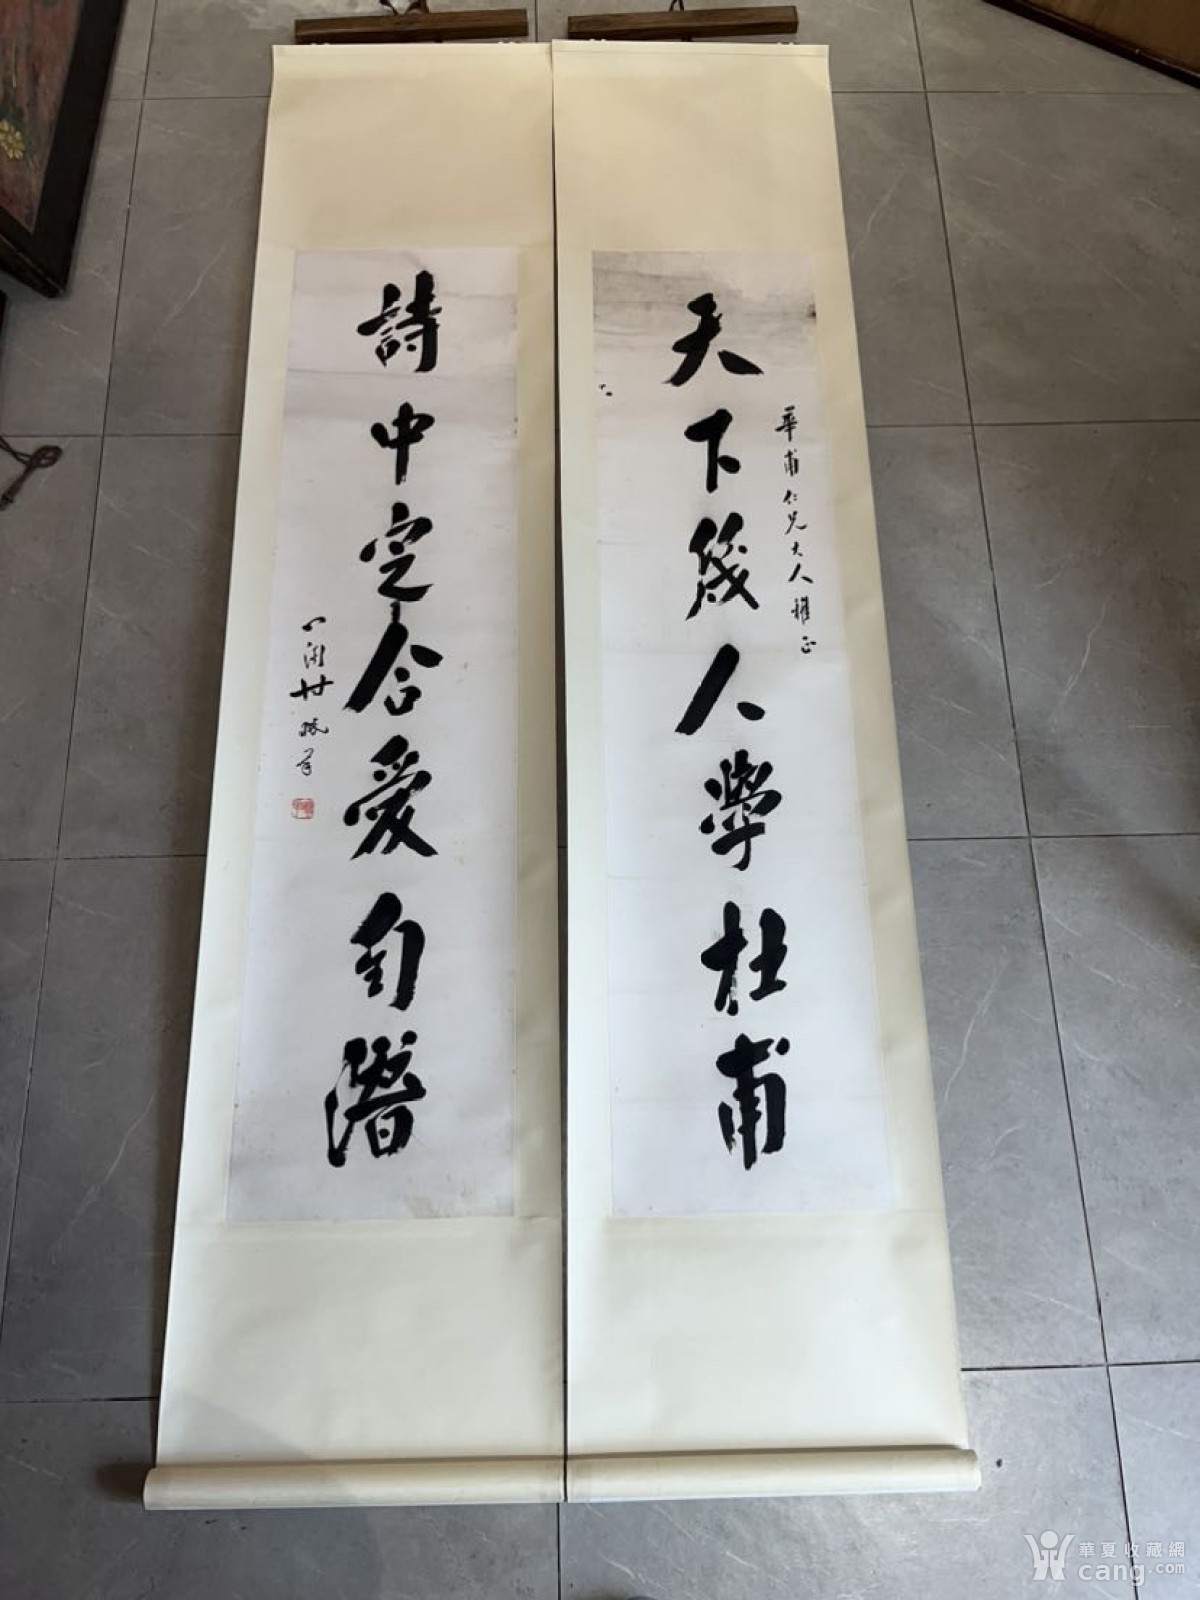 華甫仁兄大人雅正
天下幾人學杜甫
詩中定合愛匋潛
華夏收藏網
cang.com